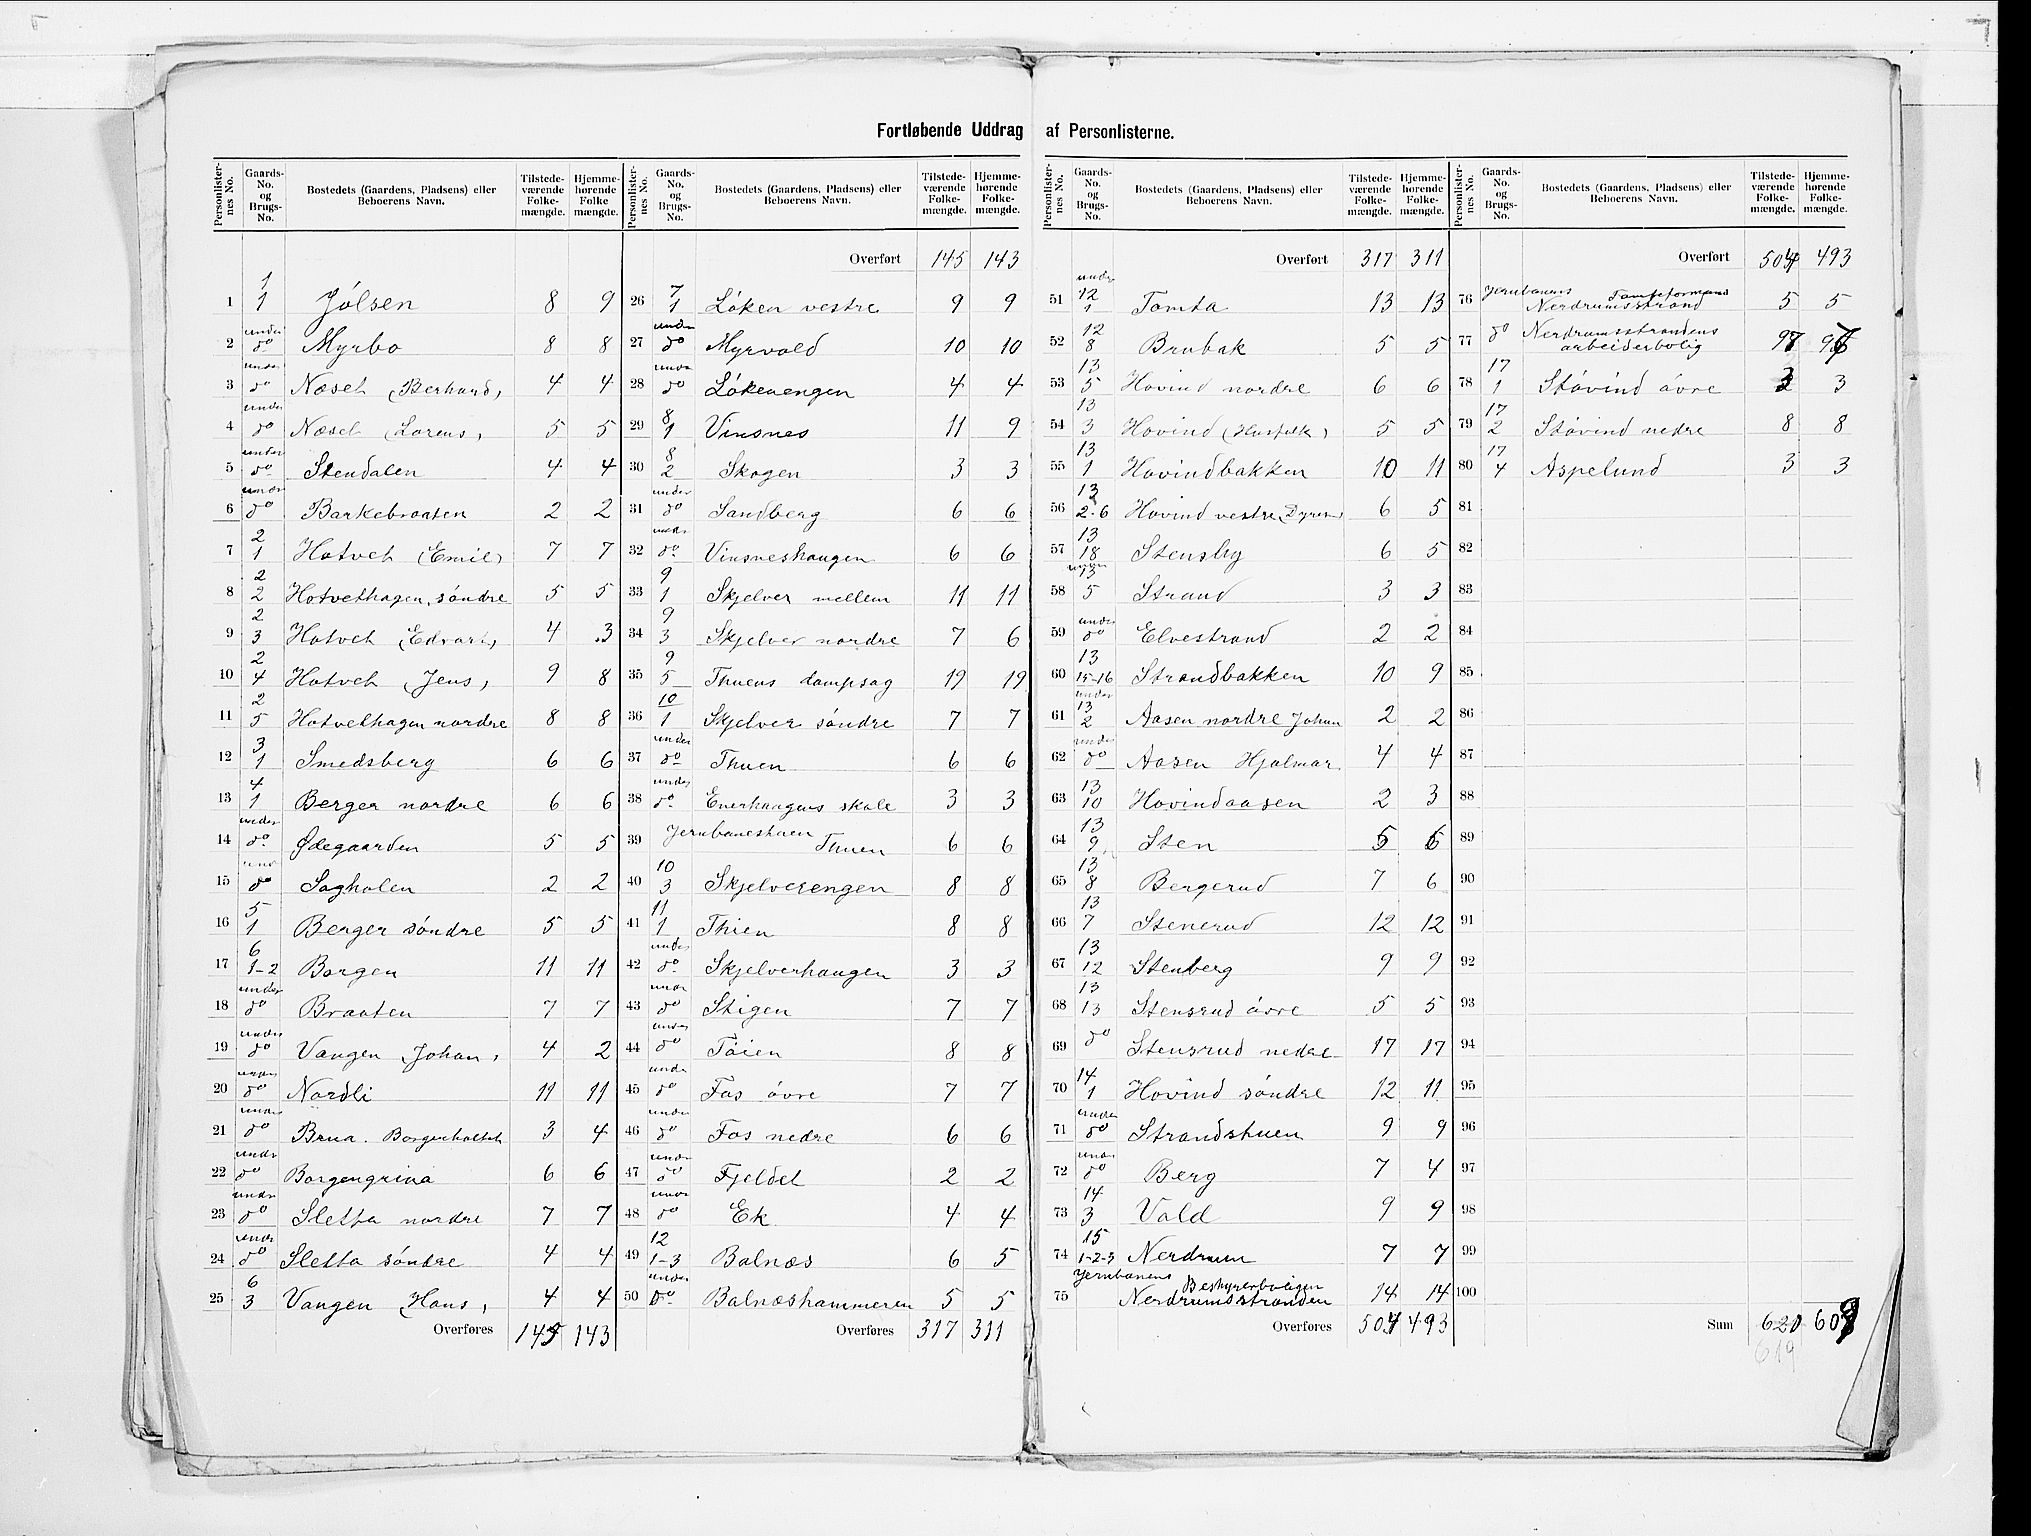 Fortløbende Uddrag af Personlisterne.
Personlister-nes No. | Gaards-No. og Brugs-No. | Bostedets (Gaardens, Pladsens) eller Beboerens Navn. | Tilstede-værende Folke-mængde. | Hjemme-hørende Folke-mængde.
1 | 1 1 | Jølsen | 8 | 9
2 | under do | Myrbo | 8 | 8
3 | under do | Næset (Berhard) | 4 | 4
4 | under do | Næset (Lorens) | 5 | 5
5 | under do | Stendalen | 4 | 4
6 | under do | Barkebraaten | 2 | 2
7 | 2 1 | Hotvet (Emil) | 7 | 7
8 | 2 2 | Hotvethagen, søndre | 5 | 5
9 | 2 3 | Hotvet (Edvart) | 4 | 3
10 | 2 4 | Hotvet (Jens) | 9 | 8
11 | 2 5 | Hotvethagen nordre | 8 | 8
12 | 3 1 | Smedsberg | 6 | 6
13 | 4 1 | Berger nordre | 6 | 6
14 | under do | Ødegaarden | 5 | 5
15 | under do | Sagholen | 2 | 2
16 | 5 1 | Berger søndre | 5 | 5
17 | 6 1-2 | Borgen | 11 | 11
18 | under do | Braaten | 7 | 7
19 | under do | Vangen (Johan) | 4 | 2
20 | under do | Nordli | 11 | 11
21 | under do | Brua. Borgenholtet | 3 | 4
22 | under do | Borgengrina | 6 | 6
23 | under do | Sletta nordre | 7 | 7
24 | under do | Sletta søndre | 4 | 4
25 | 6 3 | Vangen (Hans) | 4 | 4
Overføres 145 143
Personlister-nes No. | Gaards-No. og Brugs-No. | Bostedets (Gaardens, Pladsens) eller Beboerens Navn. | Tilstede-værende Folke-mængde. | Hjemme-hørende Folke-mængde.
Overført 145 143
26 | 7 1 | Løken vestre | 9 | 9
27 | under do | Myrvold | 10 | 10
28 | under do | Løkenengen | 4 | 4
29 | 8 1 | Vinsnes | 11 | 9
30 | 8 2 | Skogen | 3 | 3
31 | under do | Sandberg | 6 | 6
32 | under do | Vinsneshaugen | 6 | 6
33 | 9 1 | Skjelver mellem | 11 | 11
34 | 9 3 | Skjelver nordre | 7 | 6
35 | 9 5 | Thuens dampsag | 19 | 19
36 | 10 1 | Skjelver søndre | 7 | 7
37 | under do | Thuen | 6 | 6
38 | under do | Enerhaugens skole | 3 | 3
39 | Jernbanestuen Thuen | 6 | 6
40 | 10 3 | Skjelverengen | 8 | 8
41 | 11 1 | Thien | 8 | 8
42 | under do | Skjelverhaugen | 3 | 3
43 | under do | Stigen | 7 | 7
44 | under do | Töien | 8 | 8
45 | under do | Fos øvre | 7 | 7
46 | under do | Fos nedre | 6 | 6
47 | under do | Fjeldet | 2 | 2
48 | under do | Ek | 4 | 4
49 | 12 1-3 | Balnæs | 6 | 5
50 | under do | Balnæshammeren | 5 | 5
Overføres 317 311
Personlister-nes No. | Gaards-No. og Brugs-No. | Bostedets (Gaardens, Pladsens) eller Beboerens Navn. | Tilstede-værende Folke-mængde. | Hjemme-hørende Folke-mængde.
Overført 317 311
51 | under 12 1 | Tomta | 13 | 13
52 | 12 8 | Brubak | 5 | 5
53 | 13 5 | Hovind nordre | 6 | 6
54 | 13 3 | Hovind (Husfolk) | 5 | 5
55 | 13 1 | Hovindbakken | 10 | 11
56 | 13 2-6 | Hovind vestre | 6 | 5
57 | 13 18 | Stensby | 6 | 5
58 | under 13 5 | Strand | 3 | 3
59 | under do | Elvestrand | 2 | 2
60 | 13 15-16 | Strandbakken | 10 | 9
61 | under 13 2 | Aasen nordre Johan | 2 | 2
62 | under do | Aasen Hjalmar | 4 | 4
63 | 13 10 | Hovindaasen | 2 | 3
64 | 13 9 | Sten | 5 | 6
65 | 13 8 | Bergerud | 7 | 6
66 | 13 7 | Stenerud | 12 | 12
67 | 13 12 | Stenberg | 9 | 9
68 | 13 13 | Stensrud øvre | 5 | 5
69 | do | Stensrud nedre | 17 | 17
70 | 14 1 | Hovind søndre | 12 | 11
71 | under do | Strandstuen | 9 | 9
72 | under do | Berg | 7 | 4
73 | 14 3 | Vold | 9 | 9
74 | 15 1-2-3 | Nerdrum | 7 | 7
75 | Jernbanens Bestyrerboligen Nerdrumsstranden | 14 | 14
Overføres 504 493
Personlister-nes No. | Gaards-No. og Brugs-No. | Bostedets (Gaardens, Pladsens) eller Beboerens Navn. | Tilstede-værende Folke-mængde. | Hjemme-hørende Folke-mængde.
Overført 504 493
76 | Jernbanens Tomteformand Nerdrumsstrand | 5 | 5
77 | do | Nerdrumsstrandens arbeiderbolig | 97 | 97
78 | 17 1 | Støvind øvre | 3 | 3
79 | 17 2 | Støvind nedre | 8 | 8
80 | 17 4 | Aspelund | 3 | 3
81
82
83
84
85
86
87
88
89
90
91
92
93
94
95
96
97
98
99
100
Sum 620 609
619